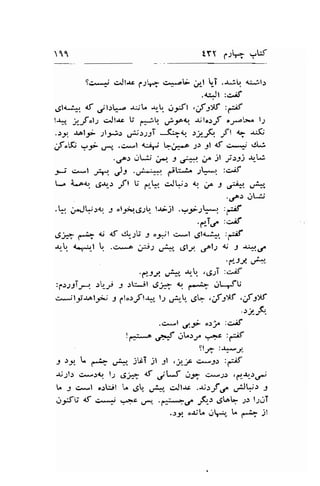 کتاب چهارم ۴۳۲ ۱۹۹
داشته باشد. آیا این خاصیت چهارم عدالت نیست؟
گفت: البته.
گفتم: گلاوکن، اکنون باید مانند صیادانی که بیشه‌ای
را محاصره کرده‌اند بهوش باشیم تا عدالت راه گریز پیدا
نکند چه اگر بگریزد به‌چنگ آوردنش دشوار خواهد بود.
شک نیست که او در همین‌جا نهفته است. پس خوب بنگر،
شاید زودتر از من ببینی و بمن نشان دهی.
گفت: بسیار مشتاقم ببینمش. ولی بهتر است تو
پیش بیفتی و من به دنبالت بیایم تا اگر دیدی به همه ما
نشان دهی.
گفتم: بسیارخوب. ازخدا یاری‌بخواه و به‌دنبال‌من بیا.
گفت: می‌آیم.
گفتم: بیشه‌ای است انبوه و تاریک که نه چشم چیزی
می‌بیند و نه راهی برای پیش رفتن هست. با اینهمه باید
پیش برویم.
گفت: آری، باید پیش برویم.
ناگهان چشمم به چیزی افتاد و فریاد برآوردم:
گلاوکن، گلاوکن، جای پایش را پیداکرده‌ام و نخواهدتوانست
بگریزد.
گفت: مژده خوبی است.
گفتم: عجب مردمان گیجی هستیم!
پرسید: چرا؟
گفتم: دوست عزیز، او از آغاز پیش چشم ما بود و
نمی‌دیدیم، درست چون کسانی که چیزی را به‌دست دارند
و دنبالش می‌گردند. عدالت پیش پای ما افتاده است و ما
آن‌را در جاهای دیگر می‌جستیم. پس عجب نیست که تاکنون
از چشم ما پنهان مانده بود.